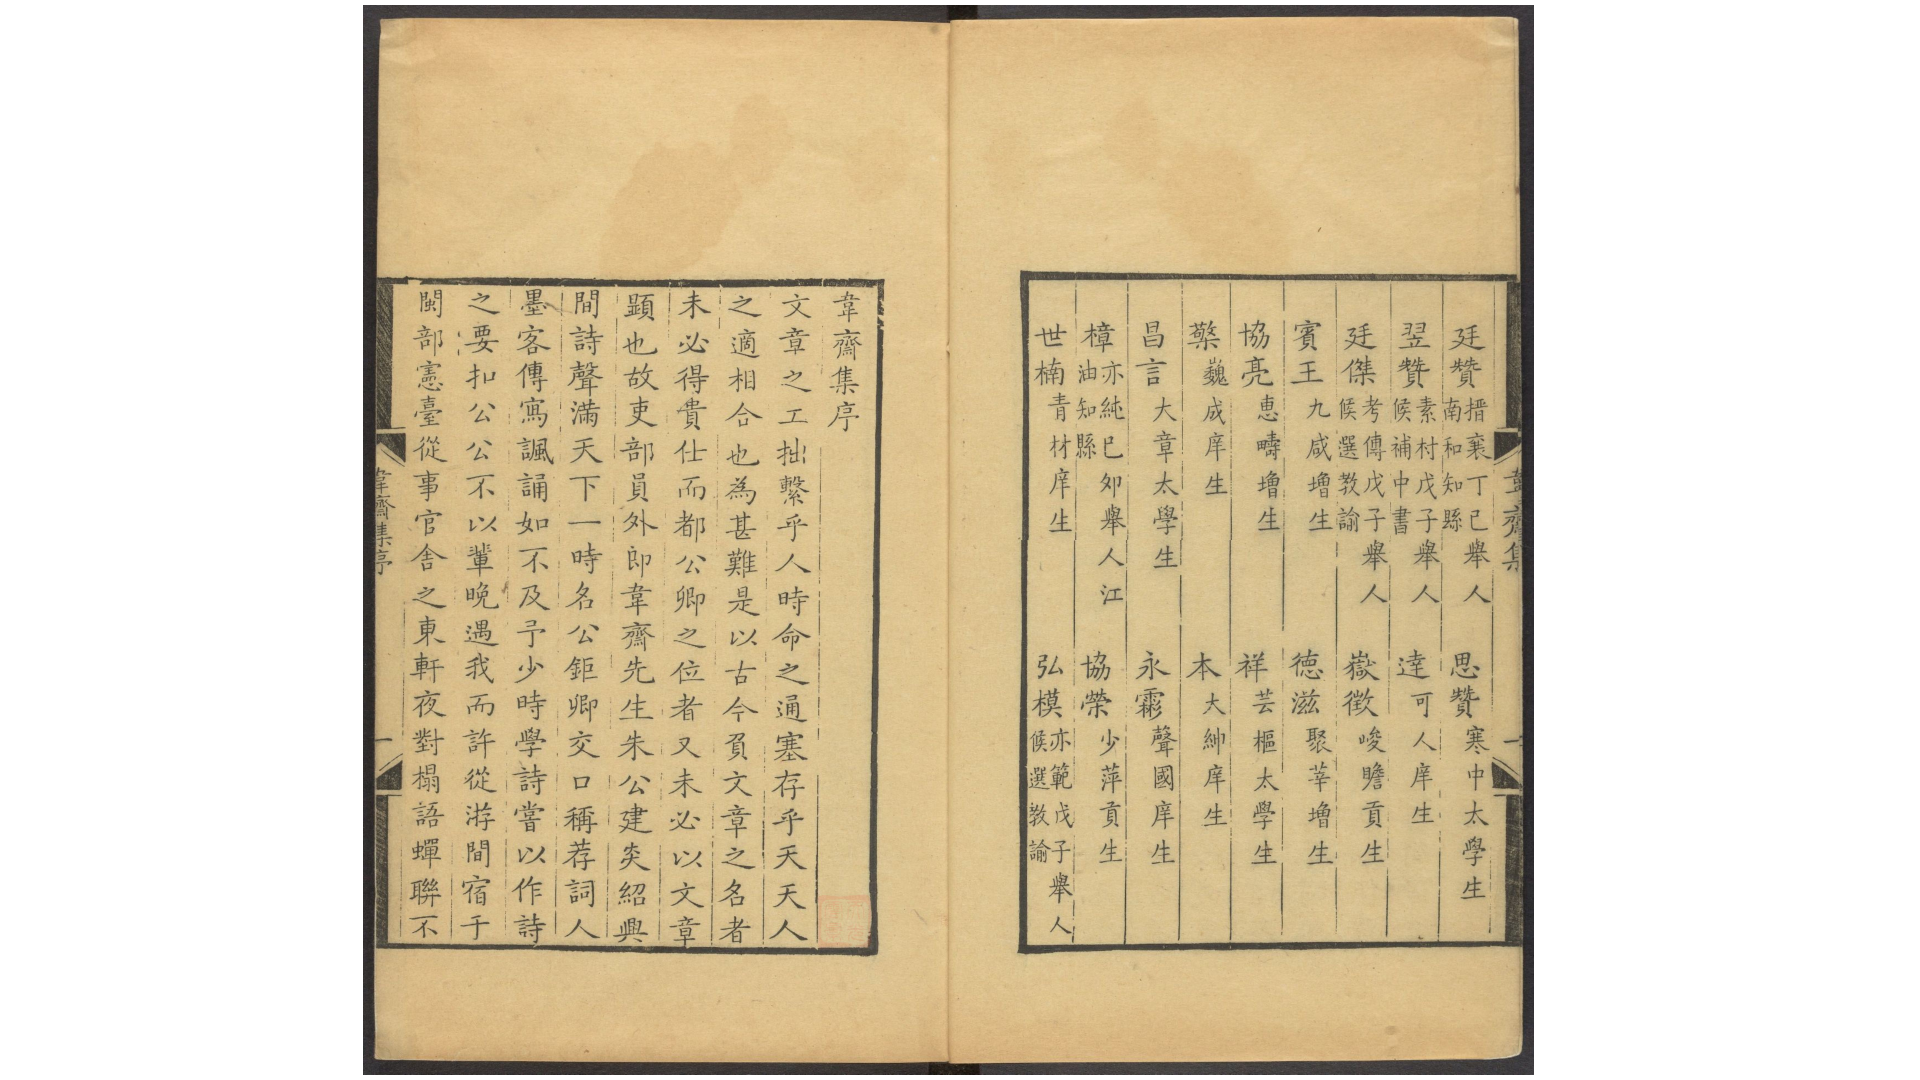 廷贊 搢襄丁巳舉人南和知縣 思贊 寒中太學生
翌贊 素村戊子舉人候補中書 達 可人庠生
廷傑 考傳戊子舉人候選教諭 嶽徵 峻瞻貢生
賓王 九咸增生 德滋 聚莘增生
協亮 惠疇增生 祥 芸樞太學生
檠 巍成庠生 本 大紳庠生
昌言 大章太學生 永霦 聲國庠生
樟 亦純己卯舉人江油知縣 協榮 少萍貢生
世楠 青材庠生 弘模 亦範戊子舉人候選教諭
韋齋集
一
韋齋集序
文章之工拙繫乎人時命之通塞存乎天天人
之適相合也為甚難是以古今負文章之名者
未必得貴仕而都公卿之位者又未必以文章
顯也故吏部員外郎韋齋先生朱公建炎紹興
間詩聲滿天下一時名公鉅卿交口稱荐詞人
墨客傳寫諷誦如不及予少時學詩嘗以作詩
之要扣公公不以輩晚遇我而許從游間宿于
閩部憲臺從事官舍之東軒夜對榻語蟬聯不
韋齋集序
一